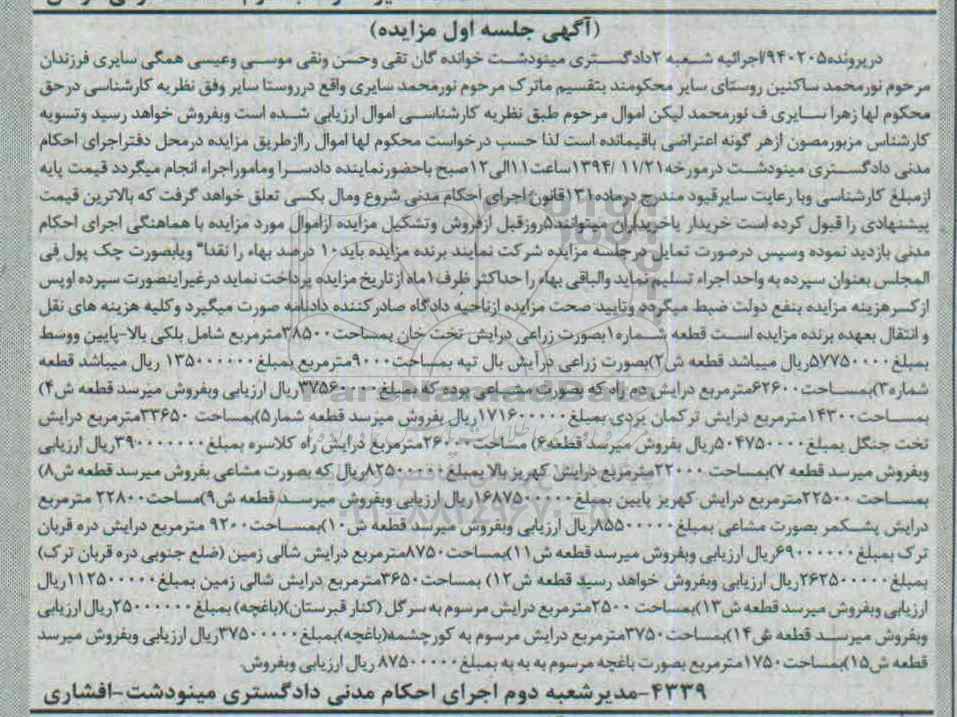 (آگهی جلسه اول مزایده)
درپرونده۹۴۰۲۰۵/اجرائیه شعبه ۲دادگستری مینودشت خوانده گان تقی وحسن ونقی موسی وعیسی همگی سایری فرزندان
مرحوم نورمحمد ساکنین روستای سایر محکومند بتقسیم ماترک مرحوم نورمحمد سایری واقع درروستا سایر وفق نظریه کارشناسی درحق
محکوم لها زهرا سایری ف نورمحمد لیکن اموال مرحوم طبق نظریه کارشناسی اموال ارزیابی شده است وبفروش خواهد رسید وتسویه
کارشناس مزبورمصون ازهر گونه اعتراضی باقیمانده است لذا حسب درخواست محکوم لها اموال راازطریق مزایده درمحل دفتراجرای احکام
مدنی دادگستری مینودشت درمورخه۱۳۹۴/۱۱/۲۱ساعت۱۱الی۱۲صبح باحضورنماینده دادسرا وماموراجراء انجام میگردد قیمت پایه
ازمبلغ کارشناسی وبا رعایت سایرقیود مندرج درماده۱۳۱قانون اجرای احکام مدنی شروع ومال بکسی تعلق خواهد گرفت که بالاترین قیمت
پیشنهادی را قبول کرده است خریدار یاخریداران میتوانند۵روزقبل ازفروش وتشکیل مزایده ازاموال مورد مزایده با هماهنگی اجرای احکام
مدنی بازدید نموده وسپس درصورت تمایل درجلسه مزایده شرکت نمایند برنده مزایده باید۱۰ درصد بهاء را نقدا" ویابصورت چک پول فی
المجلس بعنوان سپرده به واحد اجراء تسلیم نماید والباقی بهاء را حداکثر ظرف۱ماه ازتاریخ مزایده پرداخت نماید درغیراینصورت سپرده اوپس
ازکسرهزینه مزایده بنفع دولت ضبط میگردد وتایید صحت مزایده ازناحیه دادگاه صادرکننده دادنامه صورت میگیرد وکلیه هزینه های نقل
و انتقال بعهده برنده مزایده است قطعه شماره۱بصورت زراعی درایش تخت خان بمساحت۳۸۵۰۰مترمربع شامل بلکی بالا-پایین ووسط
بمبلغ۵۷۷۵۰۰۰۰۰ریال میباشد قطعه ش۲)بصورت زراعی درآیش بال تپه بمساحت۹۰۰۰مترمربع بمبلغ۱۳۵۰۰۰۰۰۰ ریال میباشد قطعه
شماره۳)بمساحت۶۲۶۰۰مترمربع درایش دم راه که بصورت مشاعی بوده که بمبلغ۳۷۵۶۰۰۰۰۰ریال ارزیابی وبفروش میرسد قطعه ش۴)
بمساحت۱۴۳۰۰مترمربع درایش ترکمان یزدی بمبلغ۱۷۱۶۰۰۰۰۰ریال بفروش میرسد قطعه شمار۵)بمساحت ۳۳۶۵۰مترمربع درایش
تخت جنگل بمبلغ۵۰۴۷۵۰۰۰۰ریال بفروش میرسد قطعه۶) مساحت۲۶۰۰۰مترمربع درایش راه کلاسره بمبلغ۳۹۰۰۰۰۰۰۰ریال ارزیابی
وبفروش میرسد قطعه ۷)بمساحت ۲۲۰۰۰مترمربع درایش کهریز بالا بمبلغ۸۲۵۰۰۰۰۰ریال که بصورت مشاعی بفروش میرسد قطعه ش۸)
بمساحت ۲۲۵۰۰مترمربع درایش کهریز پایین بمبلغ۱۶۸۷۵۰۰۰۰۰ریال ارزیابی وبفروش میرسد قطعه ش۹)مساحت۲۲۸۰۰ مترمربع
درایش پشکمر بصورت مشاعی بمبلغ۸۵۵۰۰۰۰۰ریال ارزیابی وبفروش میرسد قطعه ش۱۰)بمساحت۹۲۰۰ مترمربع درایش دره قربان
ترک بمبلغ۶۹۰۰۰۰۰۰ریال ارزیابی وبفروش میرسد قطعه ش۱۱)بمساحت۸۷۵۰مترمربع درایش شالی زمین (ضلع جنوبی دره قربان ترک)
بمبلغ۲۶۲۵۰۰۰۰۰ریال ارزیابی وبفروش خواهد رسید قطعه ش۱۲) بمساحت۳۶۵۰مترمربع درایش شالی زمین بمبلغ۱۱۲۵۰۰۰۰۰ریال
ارزیابی وبفروش میرسد قطعه ش۱۳)بمساحت ۲۵۰۰مترمربع درایش مرسوم به سرگل (کنار قبرستان)(باغچه) بمبلغ۲۵۰۰۰۰۰۰۰ریال ارزیابی
وبفروش میرسد قطعه ش۱۴)بمساحت۳۷۵۰مترمربع درایش مرسوم به کورچشمه(باغچه)بمبلغ۳۷۵۰۰۰۰۰ریال ارزیابی وبفروش میرسد
قطعه ش۱۵)بمساحت۱۷۵۰مترمربع بصورت باغچه مرسوم به به به بمبلغ۸۷۵۰۰۰۰۰ ریال ارزیابی وبفروش.
۴۳۳۹-مدیرشعبه دوم اجرای احکام مدنی دادگستری مینودشت-افشاری